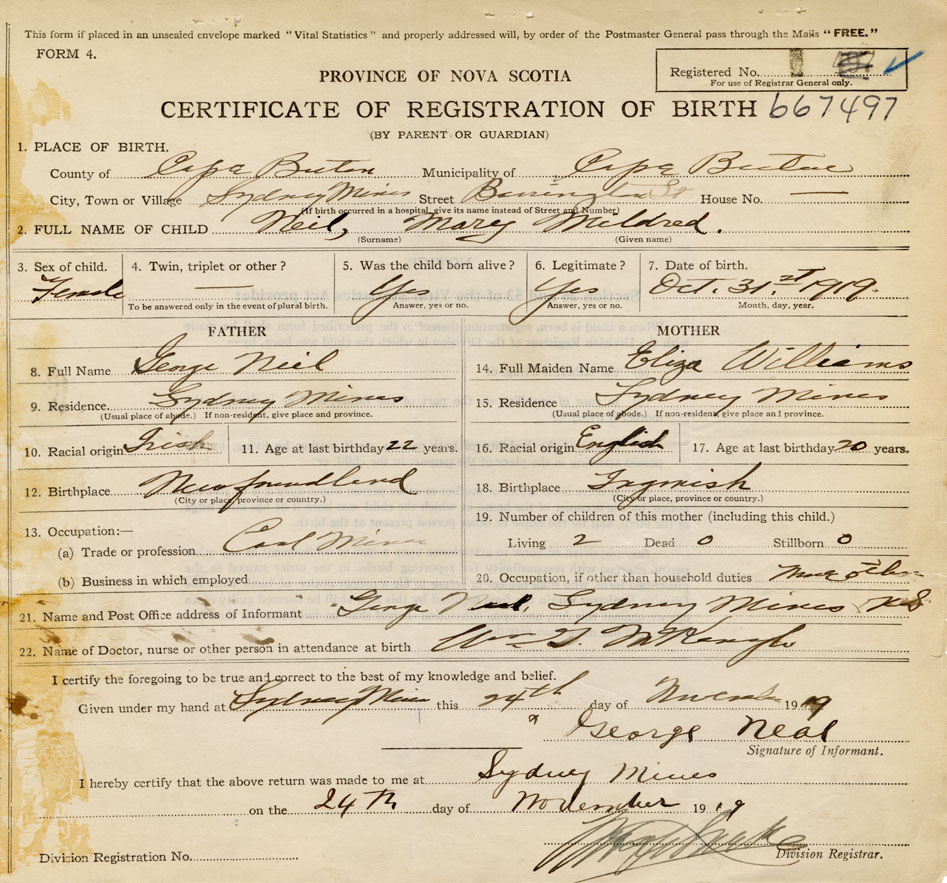 This form if placed in an unsealed envelope marked "Vital Statistics" and properly addressed will, by order of the Postmaster General pass through the Mails "FREE."
FORM 4.
Registered No.
For use of Registrar General only.
PROVINCE OF NOVA SCOTIA
CERTIFICATE OF REGISTRATION OF BIRTH 667497
(BY PARENT OR GUARDIAN)
1. PLACE OF BIRTH.
County of Cape Breton Municipality of Cape Breton
City, Town or Village Sydney Mines Street Barrington St House No. —
(If birth occurred in a hospital, give its name instead of Street and Number)
2. FULL NAME OF CHILD Neil, Mary Mildred.
(Surname) (Given name)
3. Sex of child. 4. Twin, triplet or other? 5. Was the child born alive? 6. Legitimate? 7. Date of birth.
Female — Yes Yes Oct. 31st 1919.
To be answered only in the event of plural birth. Answer, yes or no. Answer, yes or no. Month, day, year.
FATHER MOTHER
8. Full Name George Neil 14. Full Maiden Name Eliza Williams
9. Residence Sydney Mines 15. Residence Sydney Mines
(Usual place of abode.) If non-resident, give place and province. (Usual place of abode.) If non-resident, give place and province.
10. Racial origin Irish 11. Age at last birthday 22 years. 16. Racial origin English 17. Age at last birthday 20 years.
12. Birthplace Newfoundland 18. Birthplace Ingnish
(City or place, province or country.) (City or place, province or country.)
13. Occupation:— 19. Number of children of this mother (including this child.)
(a) Trade or profession Coal Miner Living 2 Dead 0 Stillborn 0
(b) Business in which employed 20. Occupation, if other than household duties
21. Name and Post Office address of Informant George Neil, Sydney Mines N.S
22. Name of Doctor, nurse or other person in attendance at birth Wm
I certify the foregoing to be true and correct to the best of my knowledge and belief.
Given under my hand at Sydney Mines this 24th day of 1919
George Neal
Signature of Informant.
I hereby certify that the above return was made to me at Sydney Mines
on the 24th day of November 1919
Division Registration No. Division Registrar.